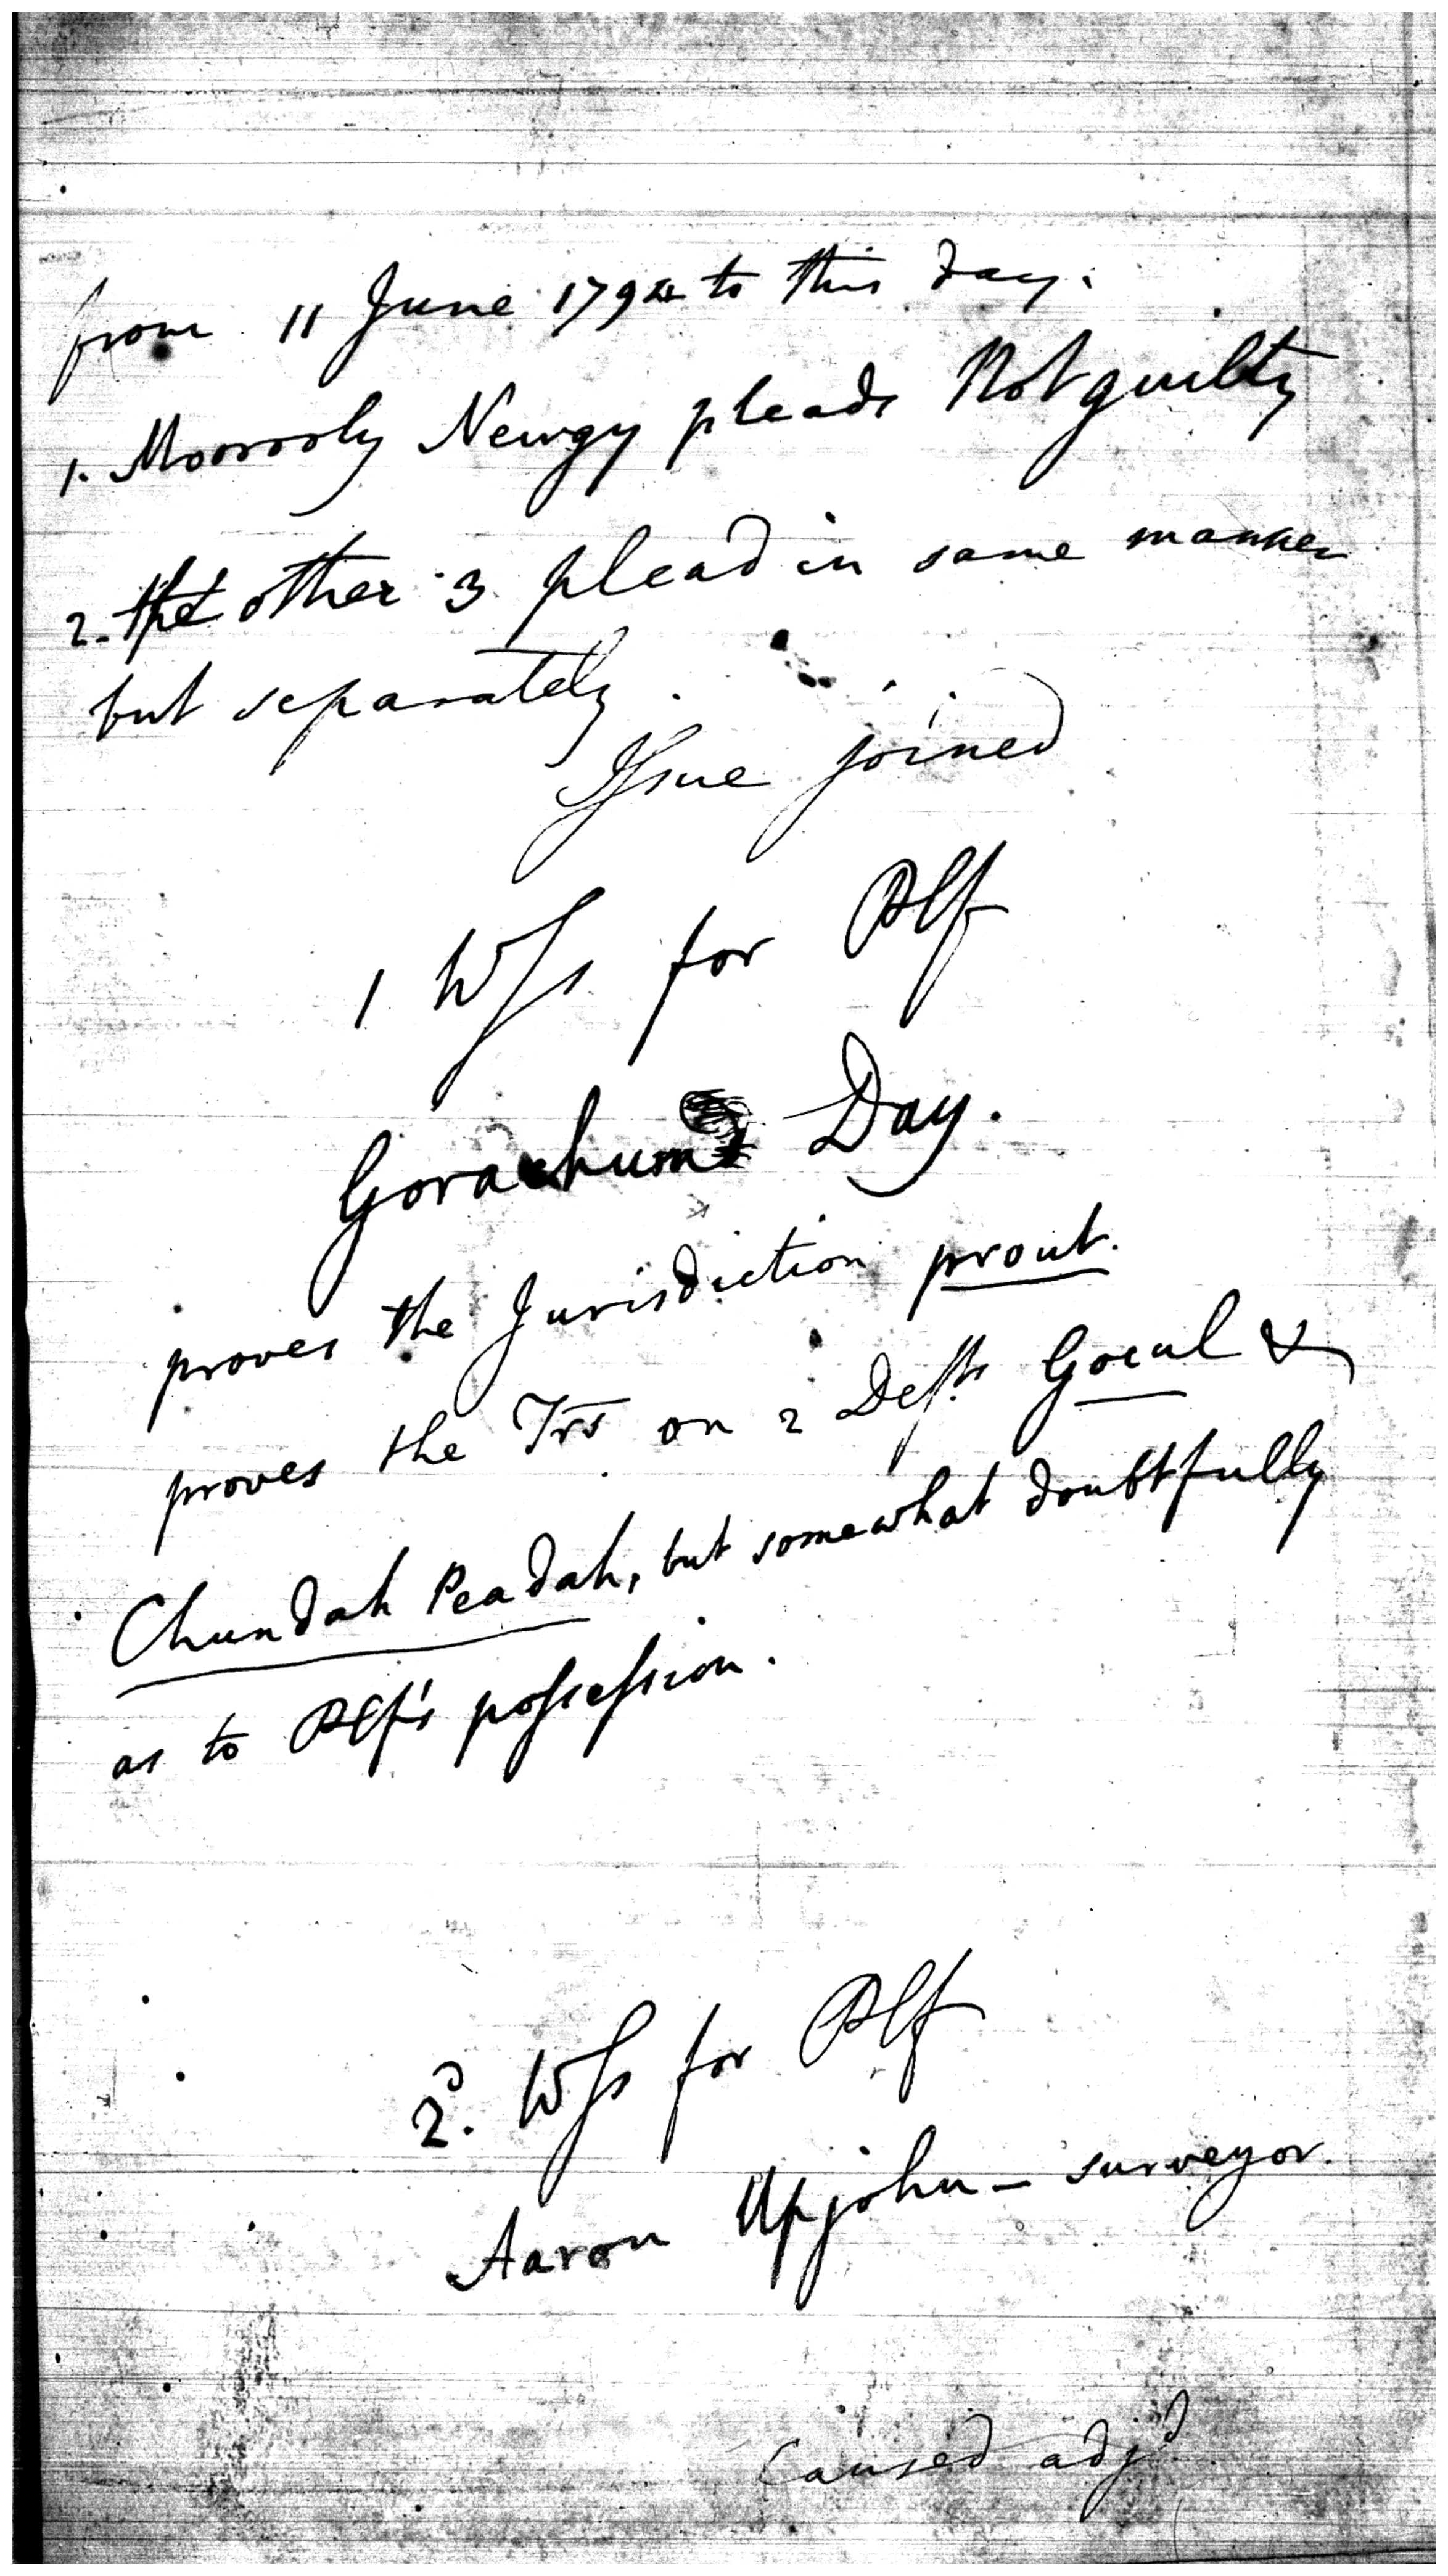 from 11 June 1794 to this day.
1. Moorooly Newgy pleads Not guilty
2. the other 3 plead in same manner
but separately.
Issue joined
1 Wss for Plf
Gorachund Day.
proves the Jurisdiction prout.
proves the Trs on 2 Defts Gocul &
Chundah Peadah, but somewhat doubtfully
as to Plf's possession.
2d. Wss for Plf
Aaron Upjohn - surveyor.
Caused adjd.